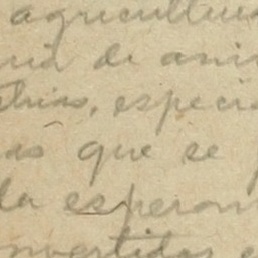 agricultur
ria de ani
trias, especi
as que se
la esperan
nvertidos e